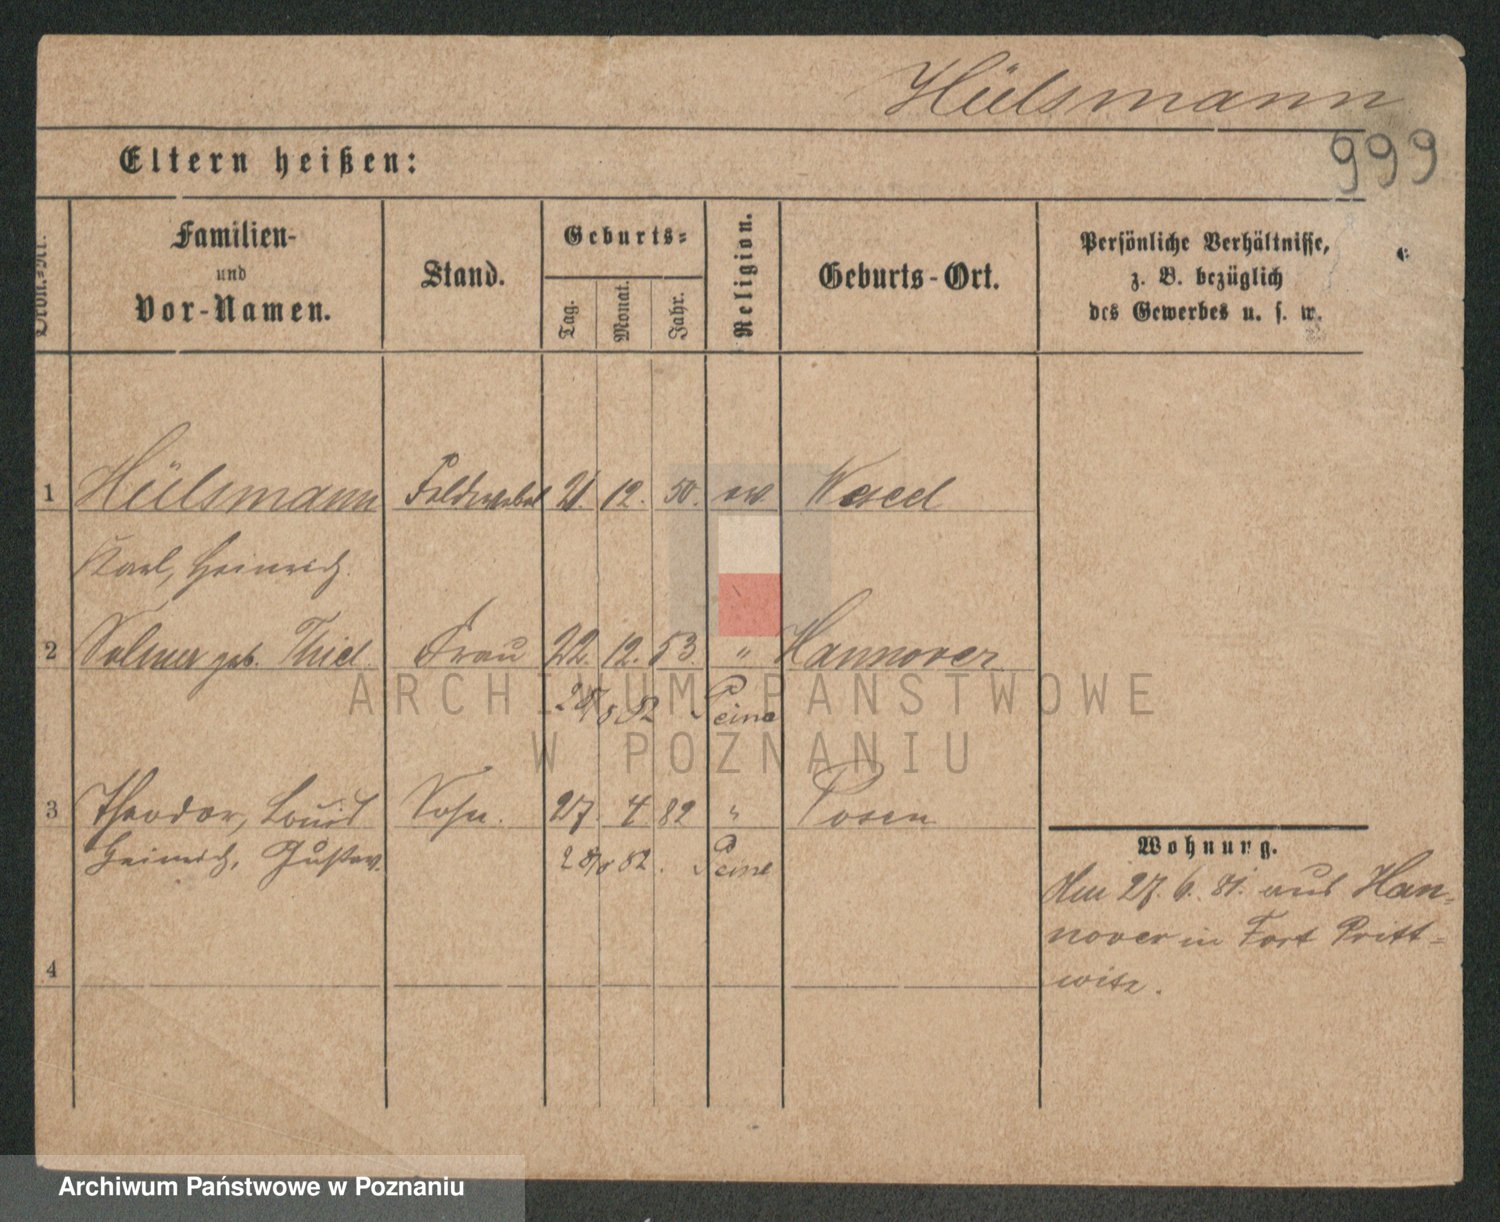 Hülsmann
999
Eltern heißen:
Dron.-Nr.
Familien-
und
Vor-Namen.
Stand.
Geburts-
Tag.
Monat.
Jahr.
Religion.
Geburts-Ort.
Persönliche Verhältnisse,
z. B. bezüglich
des Gewerbes u. s. w.
1 Hülsmann Feldwebel 21. 12. 50. ev Wesel
Karl, Heinrich.
2 geb. Thiel Frau 22. 12. 53. " Hannover
28/8 82 Peine
3 Theodor, Louis Sohn. 27. 4 82 " Posen
Heinrich, Gustav. 28/8 82. Peine
4
Wohnung.
Am 27. 6. 81. aus Han-
nover in Fort Pritt-
witz.
ARCHIWUM PAŃSTWOWE
W POZNANIU
Archiwum Państwowe w Poznaniu